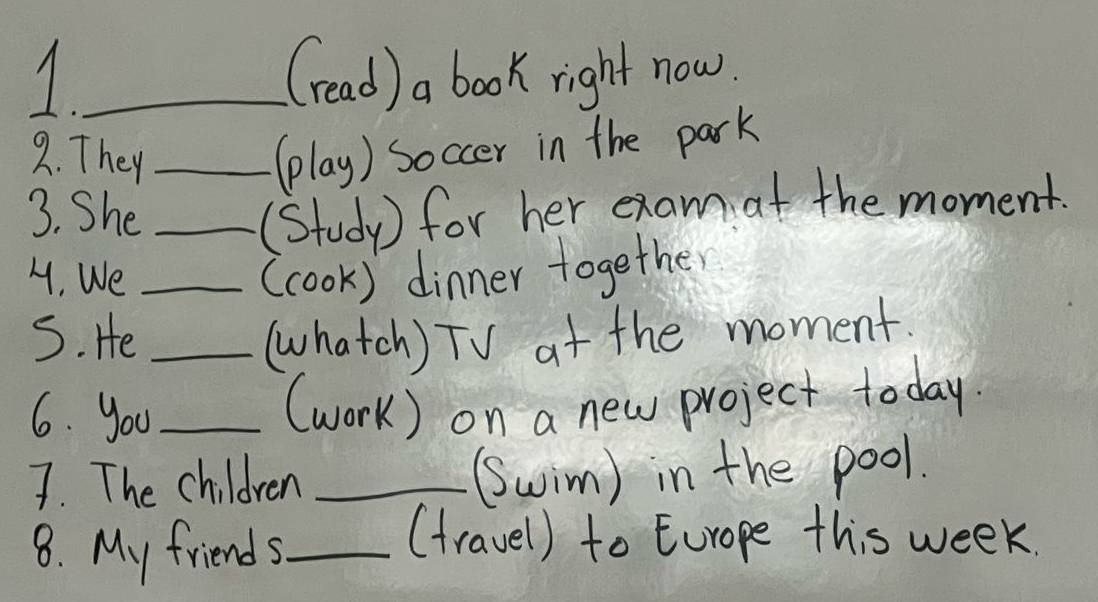 1. ________ (read) a book right now.
2. They _____ (play) soccer in the park
3. She ____ (Study) for her exam at the moment.
4. We ____ (cook) dinner together.
5. He ____ (whatch) TV at the moment.
6. You ____ (work) on a new project today.
7. The children ______ (Swim) in the pool.
8. My friends ____ (travel) to Europe this week.